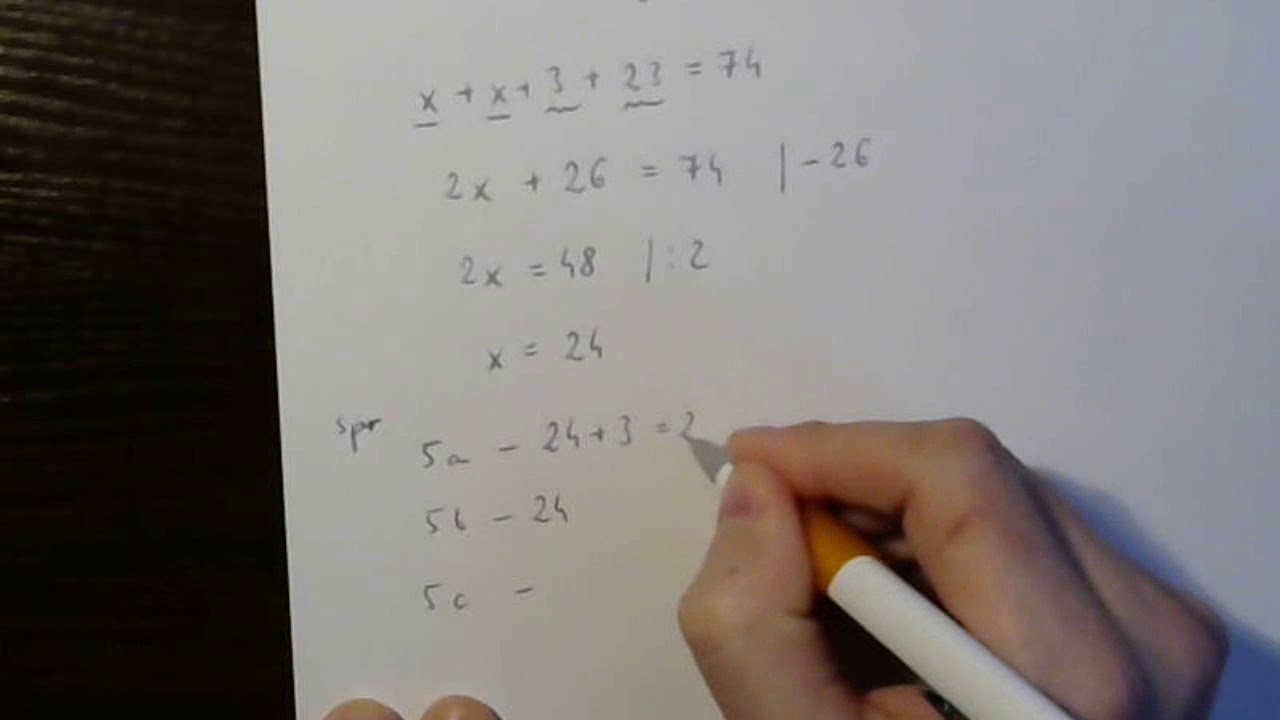 x + x + 3 + 23 = 74
2x + 26 = 74 | - 26
2x = 48 | : 2
x = 24
spr
5a - 24 + 3 = 2
5b - 24
5c -